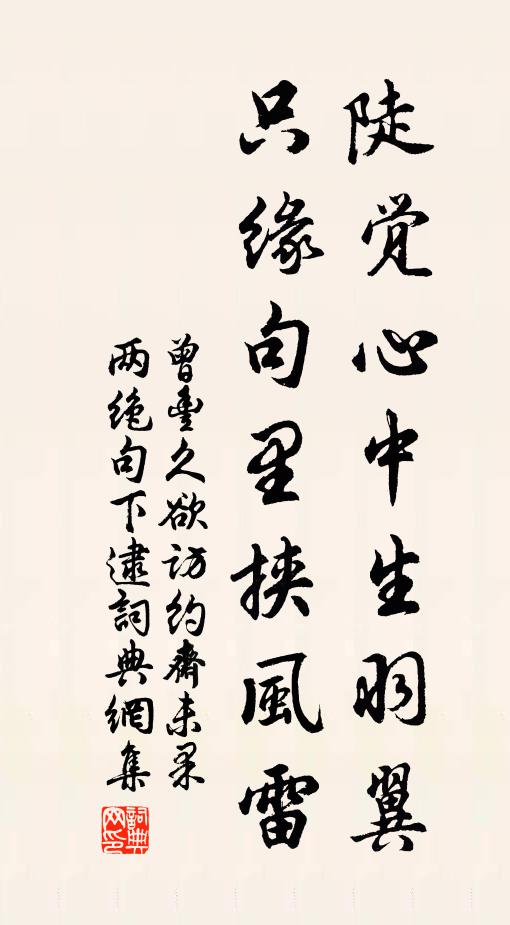 陡觉心中生羽翼
只缘句里挟風雷
曾豊久欲访约齋未果
两绝句下逮詞典網集
詞典網印